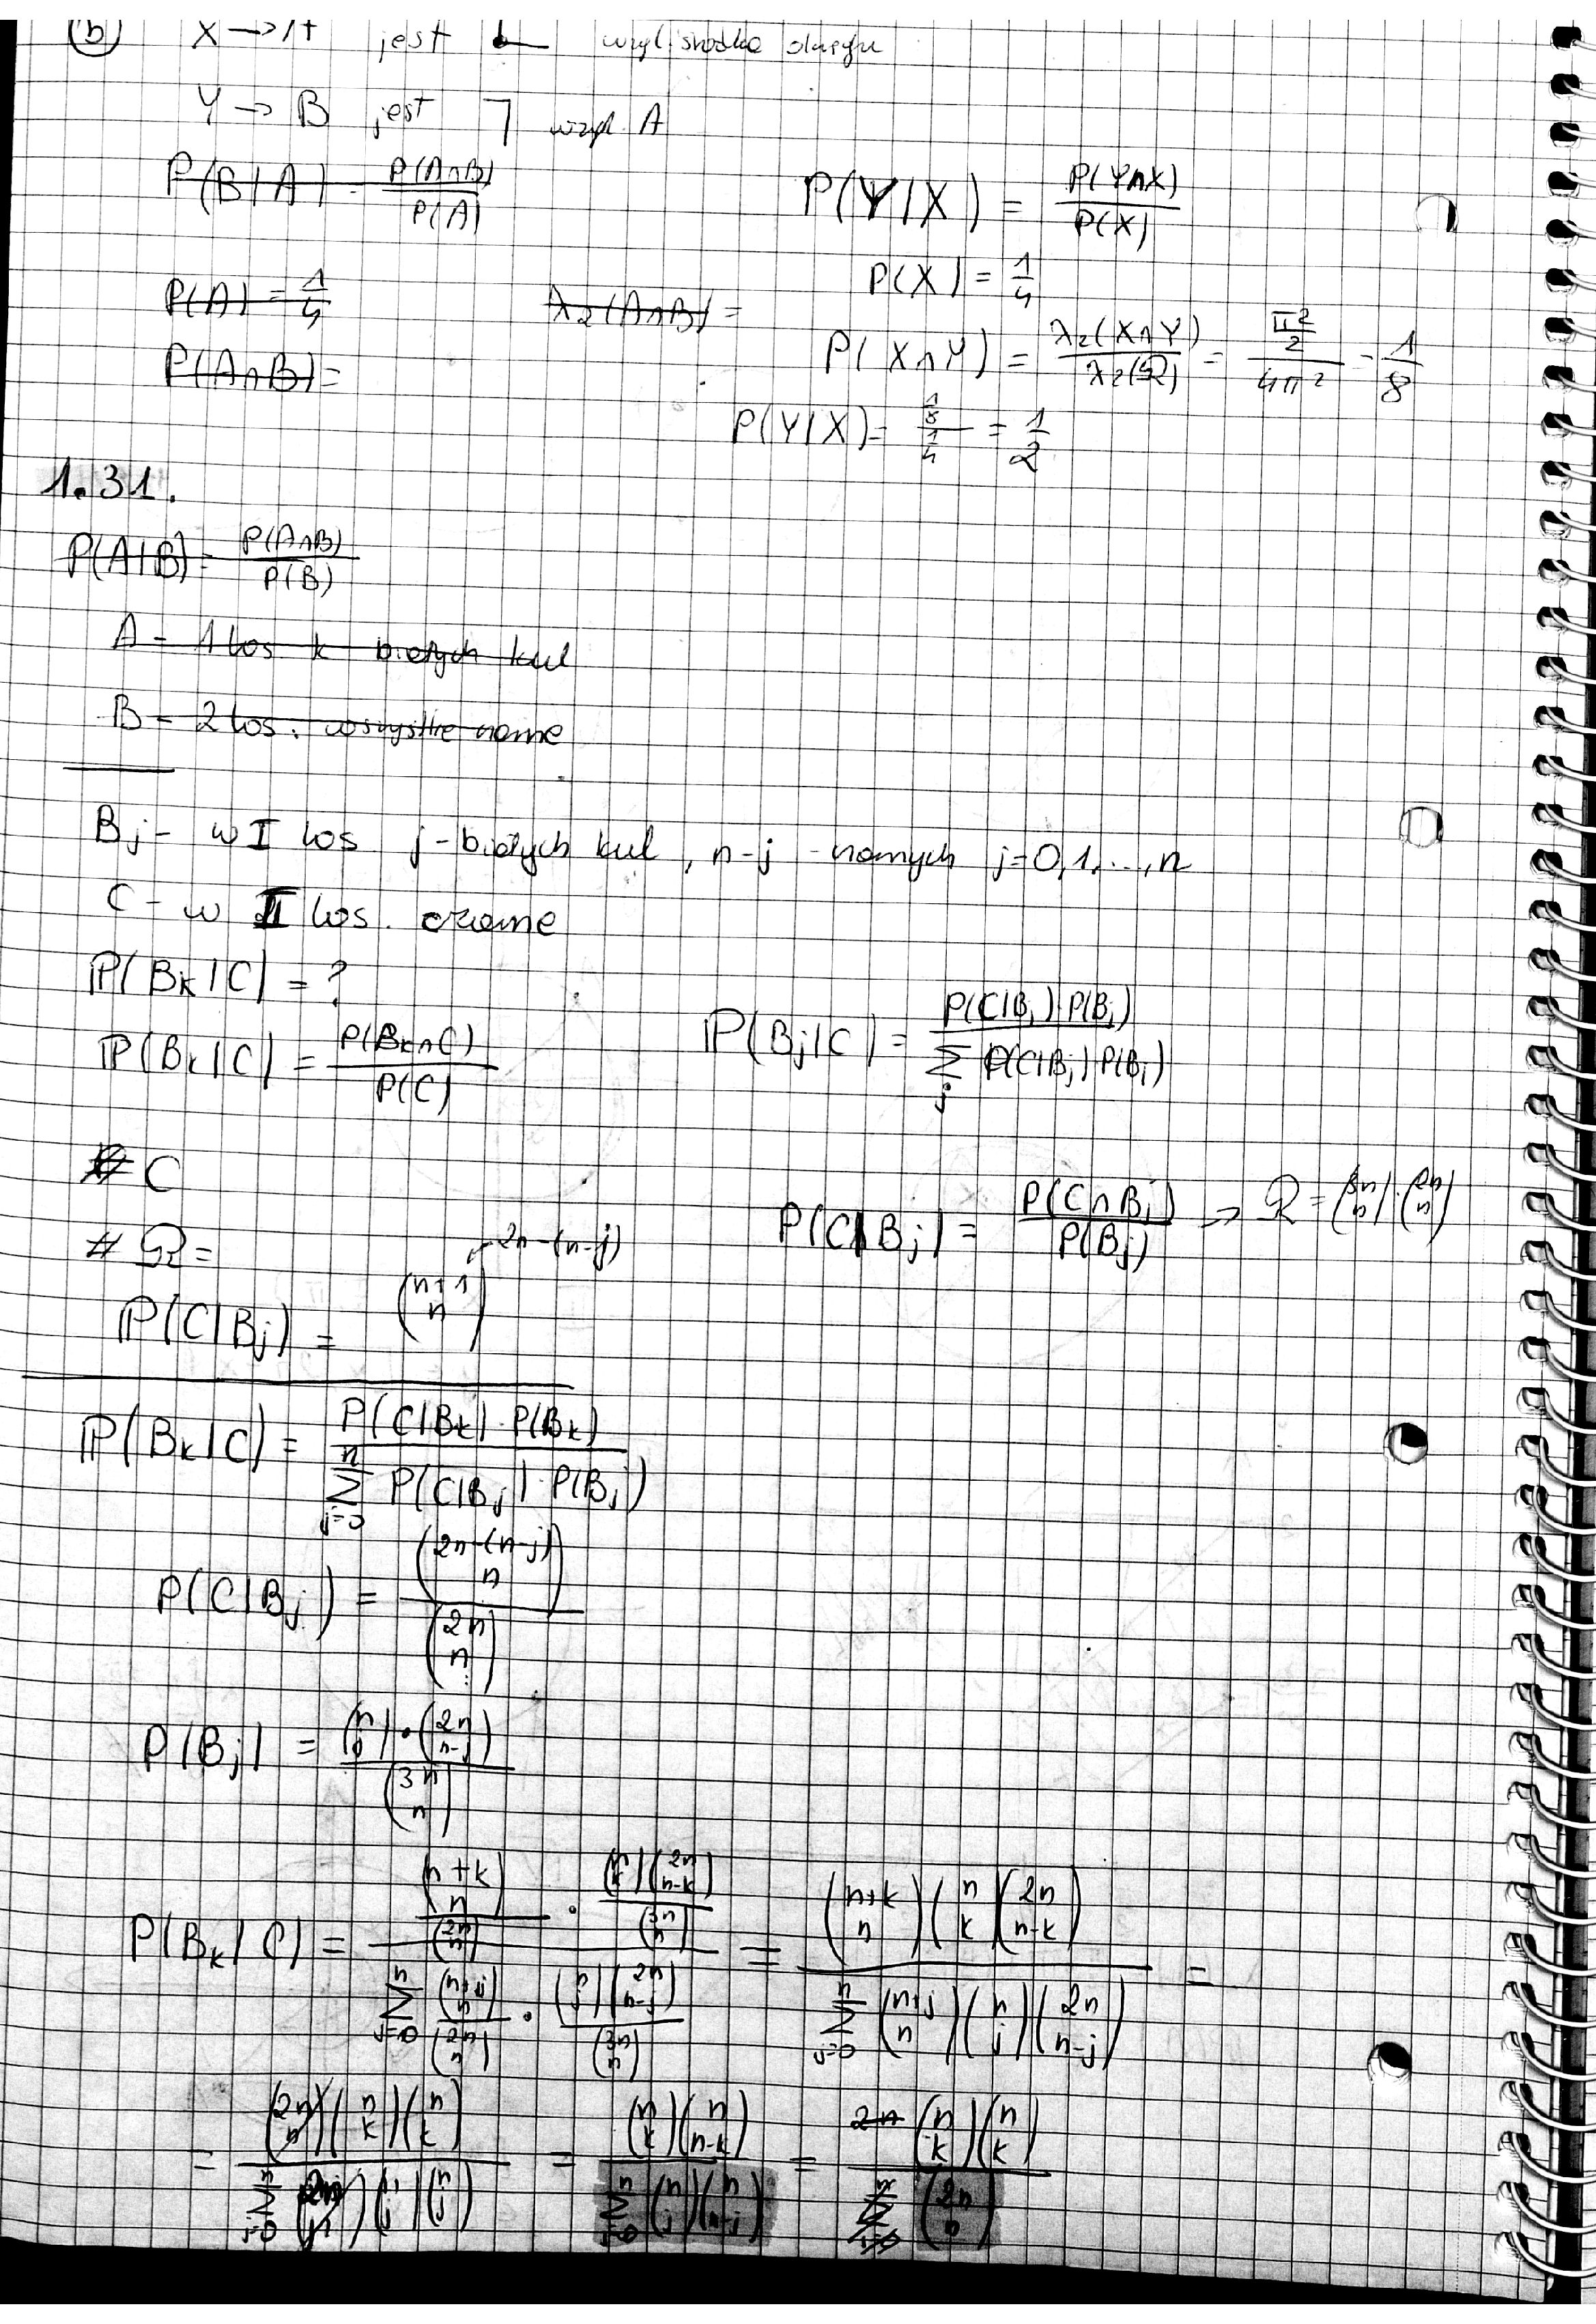 (b) X → A jest wzgl. środka okręgu
Y → B jest ⅂ wzgl. A
P(B|A) = P(A∩B)/P(A)
P(Y|X) = P(Y∩X)/P(X)
P(A) = 1/4
λ₂(A∩B) =
P(X) = 1/4
P(A∩B) =
P(X∩Y) = λ₂(X∩Y)/λ₂(Ω) = (π²/2)/(4π²) = 1/8
P(Y|X) = (1/8)/(1/4) = 1/2
1.31.
P(A|B) = P(A∩B)/P(B)
A - 1 los k białych kul
B - 2 los. wszystkie
Bj - w I los j-białych kul, n-j j=0,1,...,n
C - w II los.
P(Bk|C) = ?
P(Bk|C) = P(Bk∩C)/P(C)
P(Bj|C) = P(C|Bj) P(Bj) / Σj= P(C|Bj) P(Bj)
# C
# Ω =
P(C|Bj) = P(C∩Bj)/P(Bj) → Ω = (3n n)·(2n n)
2n-(n-j)
P(C|Bj) = (n+1 n)
P(Bk|C) = P(C|Bk)·P(Bk) / Σ_{j=0}^{n} P(C|Bj)·P(Bj)
P(C|Bj) = (2n-(n-j) n) / (2n n)
P(Bj) = (n j)·(2n n-j) / (3n n)
P(Bk|C) = [(n+k n)/(2n n) · (n k)(2n n-k)/(3n n)] / [Σ_{j=0}^{n} (n+j n)/(2n n) · (n j)(2n n-j)/(3n n)] = (n+k n)(n k)(2n n-k) / Σ_{j=0}^{n} (n+j n)(n j)(2n n-j) =
= (2n n)(n k)(n k) / Σ_{j=0}^{n} (2n n)(n j)(n j) = (n k)(n n-k) / Σ_{j=0}^{n} (n j)(n n-j) = 2n (n k)(n k) / (2n n)